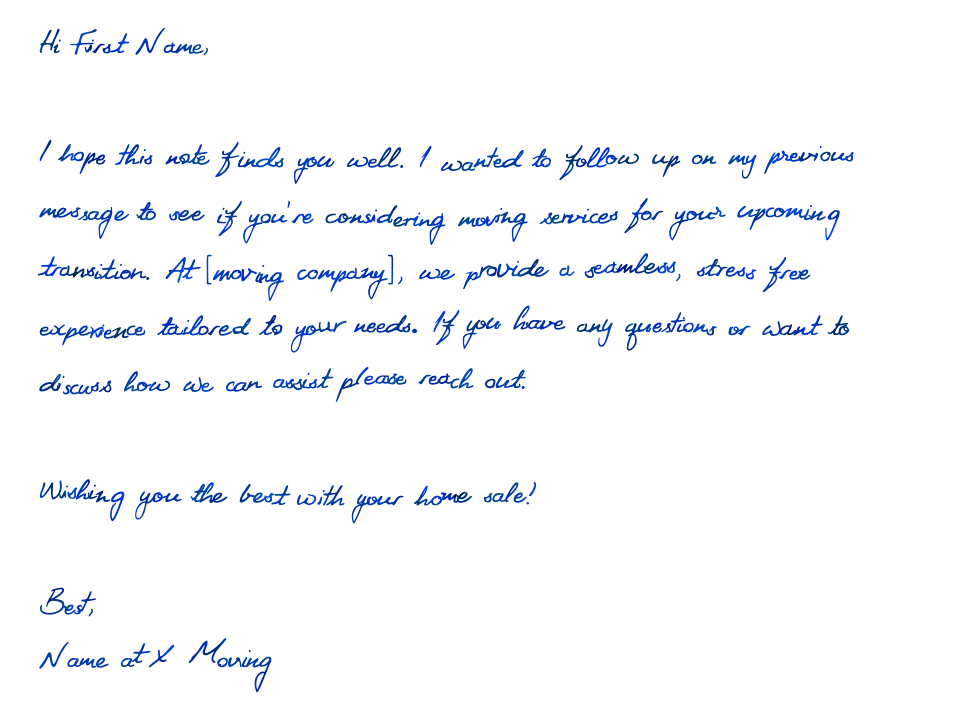 Hi First Name,
I hope this note finds you well. I wanted to follow up on my previous
message to see if you're considering moving services for your upcoming
transition. At [moving company], we provide a seamless, stress free
experience tailored to your needs. If you have any questions or want to
discuss how we can assist please reach out.
Wishing you the best with your home sale!
Best,
Name at X Moving